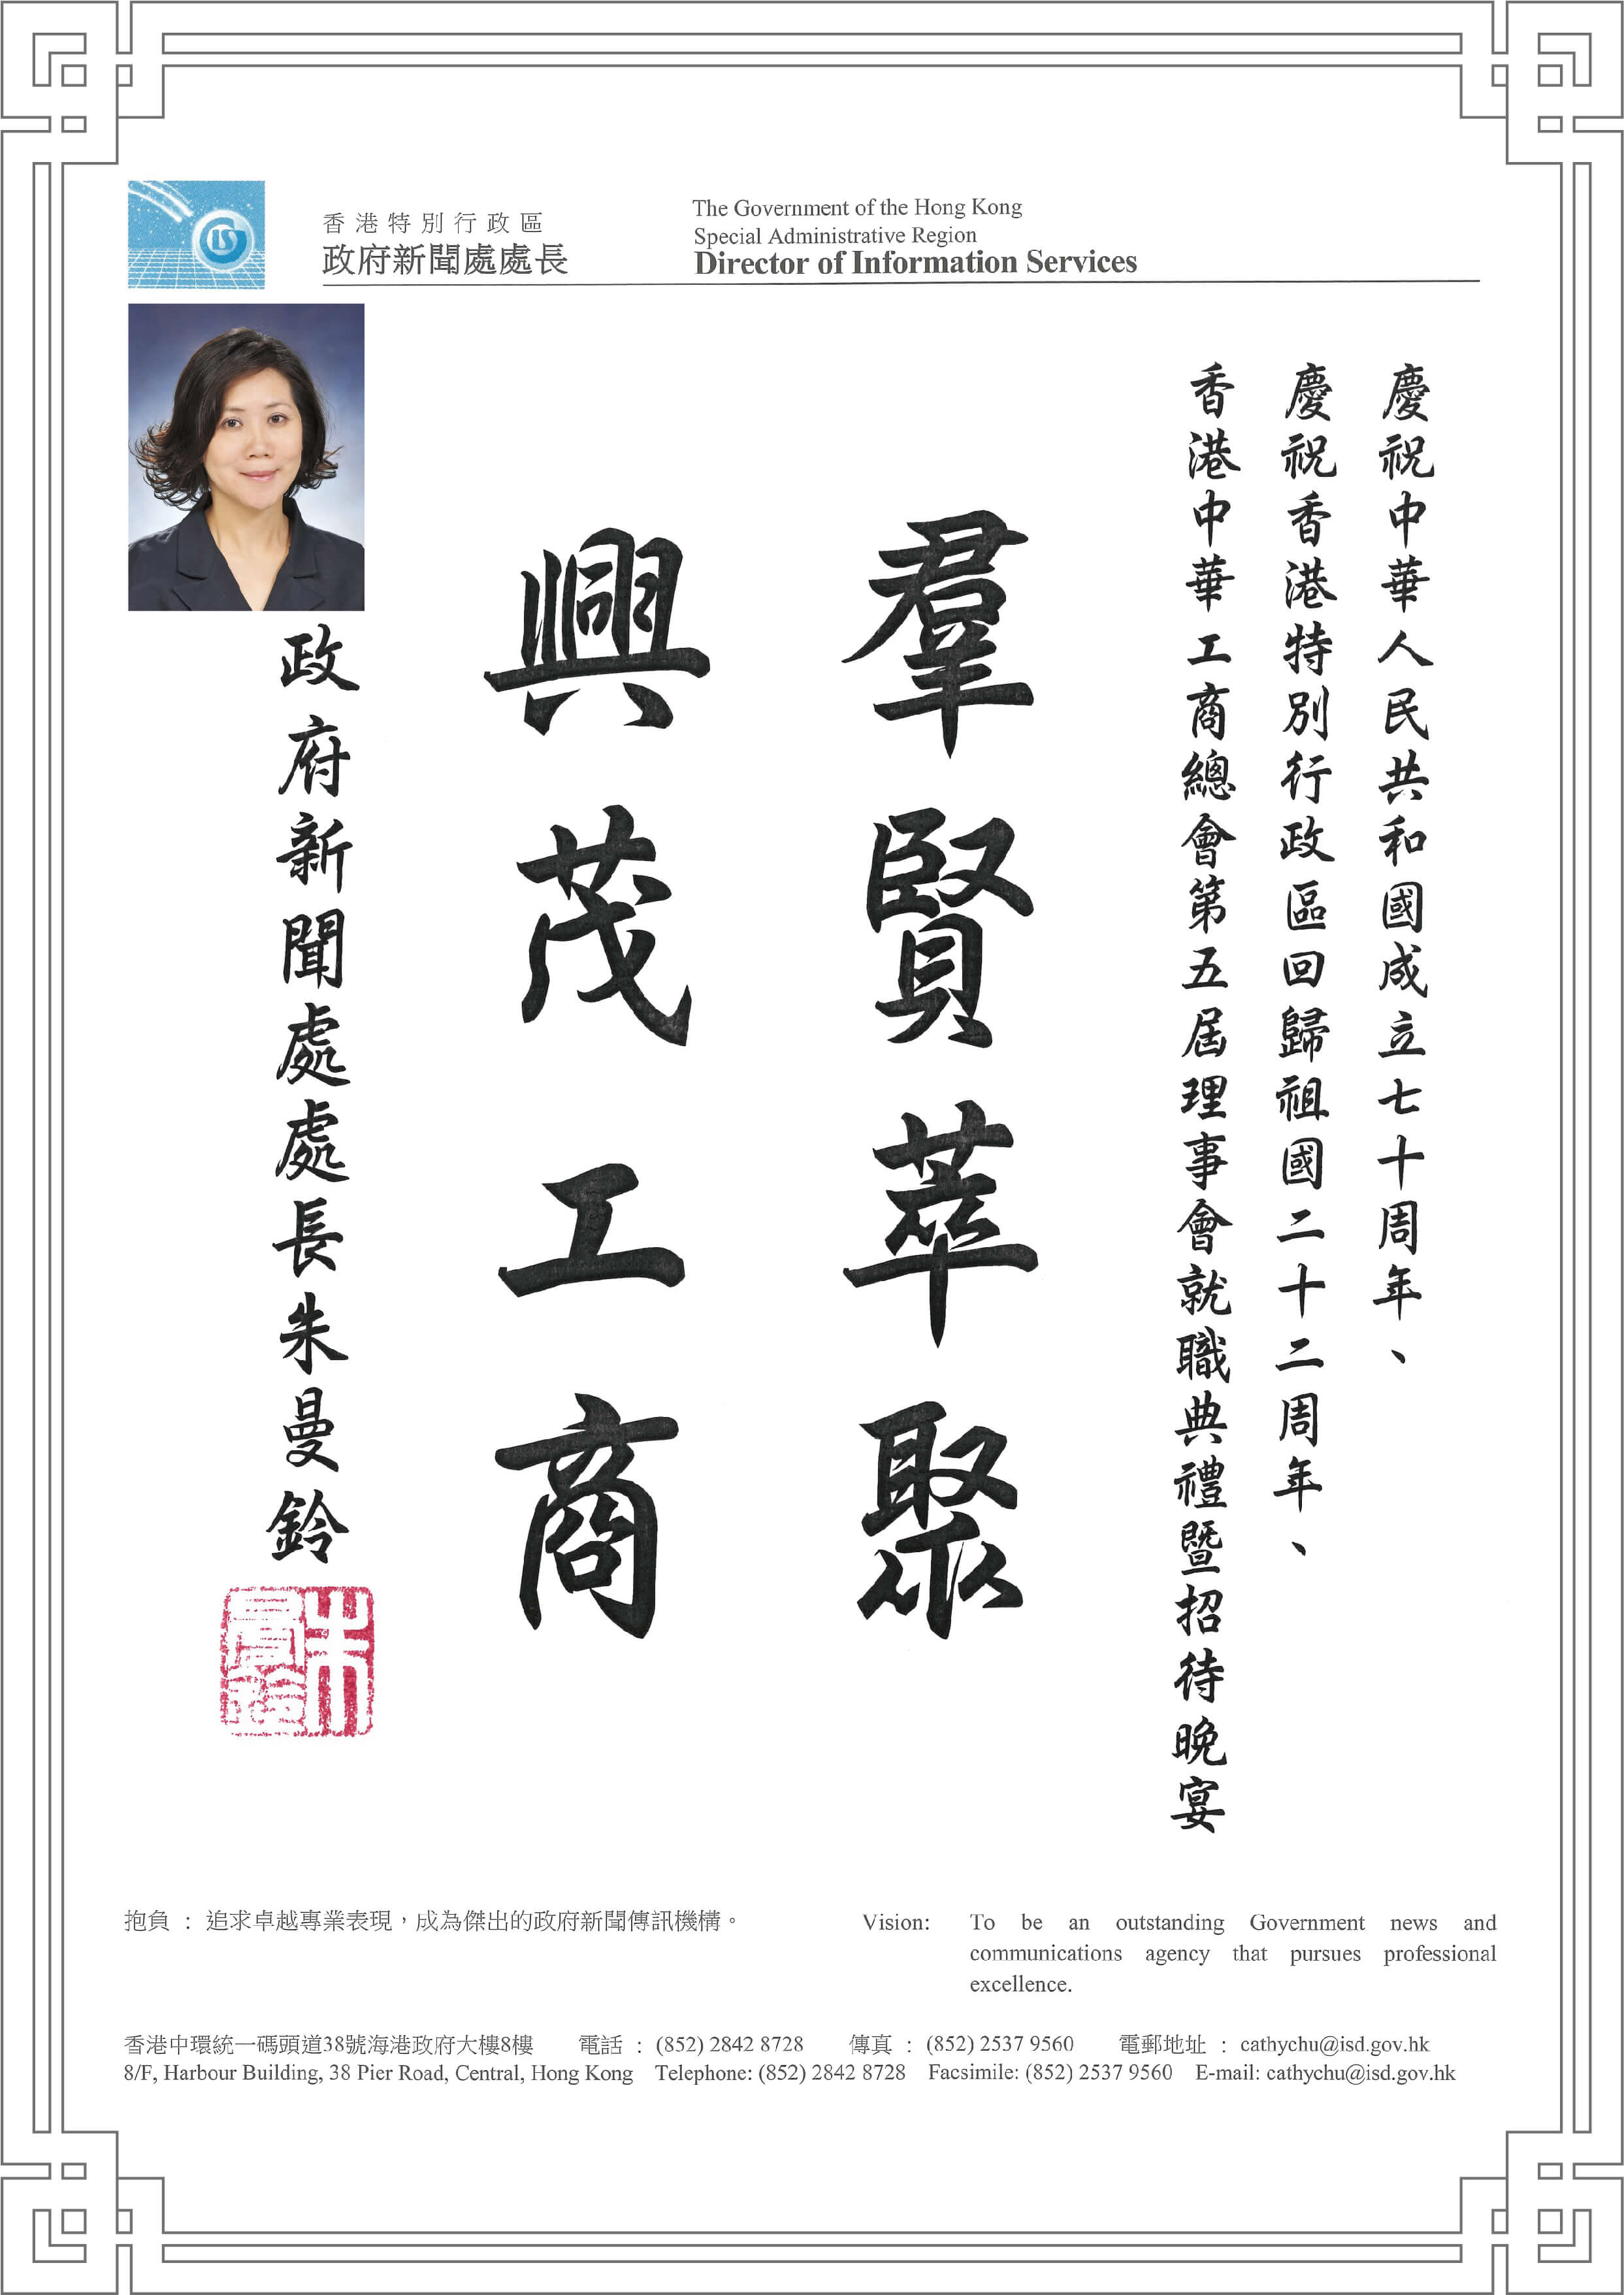 香港特別行政區
政府新聞處處長
The Government of the Hong Kong
Special Administrative Region
Director of Information Services
慶祝中華人民共和國成立七十周年、
慶祝香港特別行政區回歸祖國二十二周年、
香港中華工商總會第五屆理事會就職典禮暨招待晚宴
羣賢萃聚
興茂工商
政府新聞處處長朱曼鈴
朱曼鈴
抱負 : 追求卓越專業表現，成為傑出的政府新聞傳訊機構。
Vision: To be an outstanding Government news and
communications agency that pursues professional
excellence.
香港中環統一碼頭道38號海港政府大樓8樓 電話 : (852) 2842 8728 傳真 : (852) 2537 9560 電郵地址 : cathychu@isd.gov.hk
8/F, Harbour Building, 38 Pier Road, Central, Hong Kong Telephone: (852) 2842 8728 Facsimile: (852) 2537 9560 E-mail: cathychu@isd.gov.hk